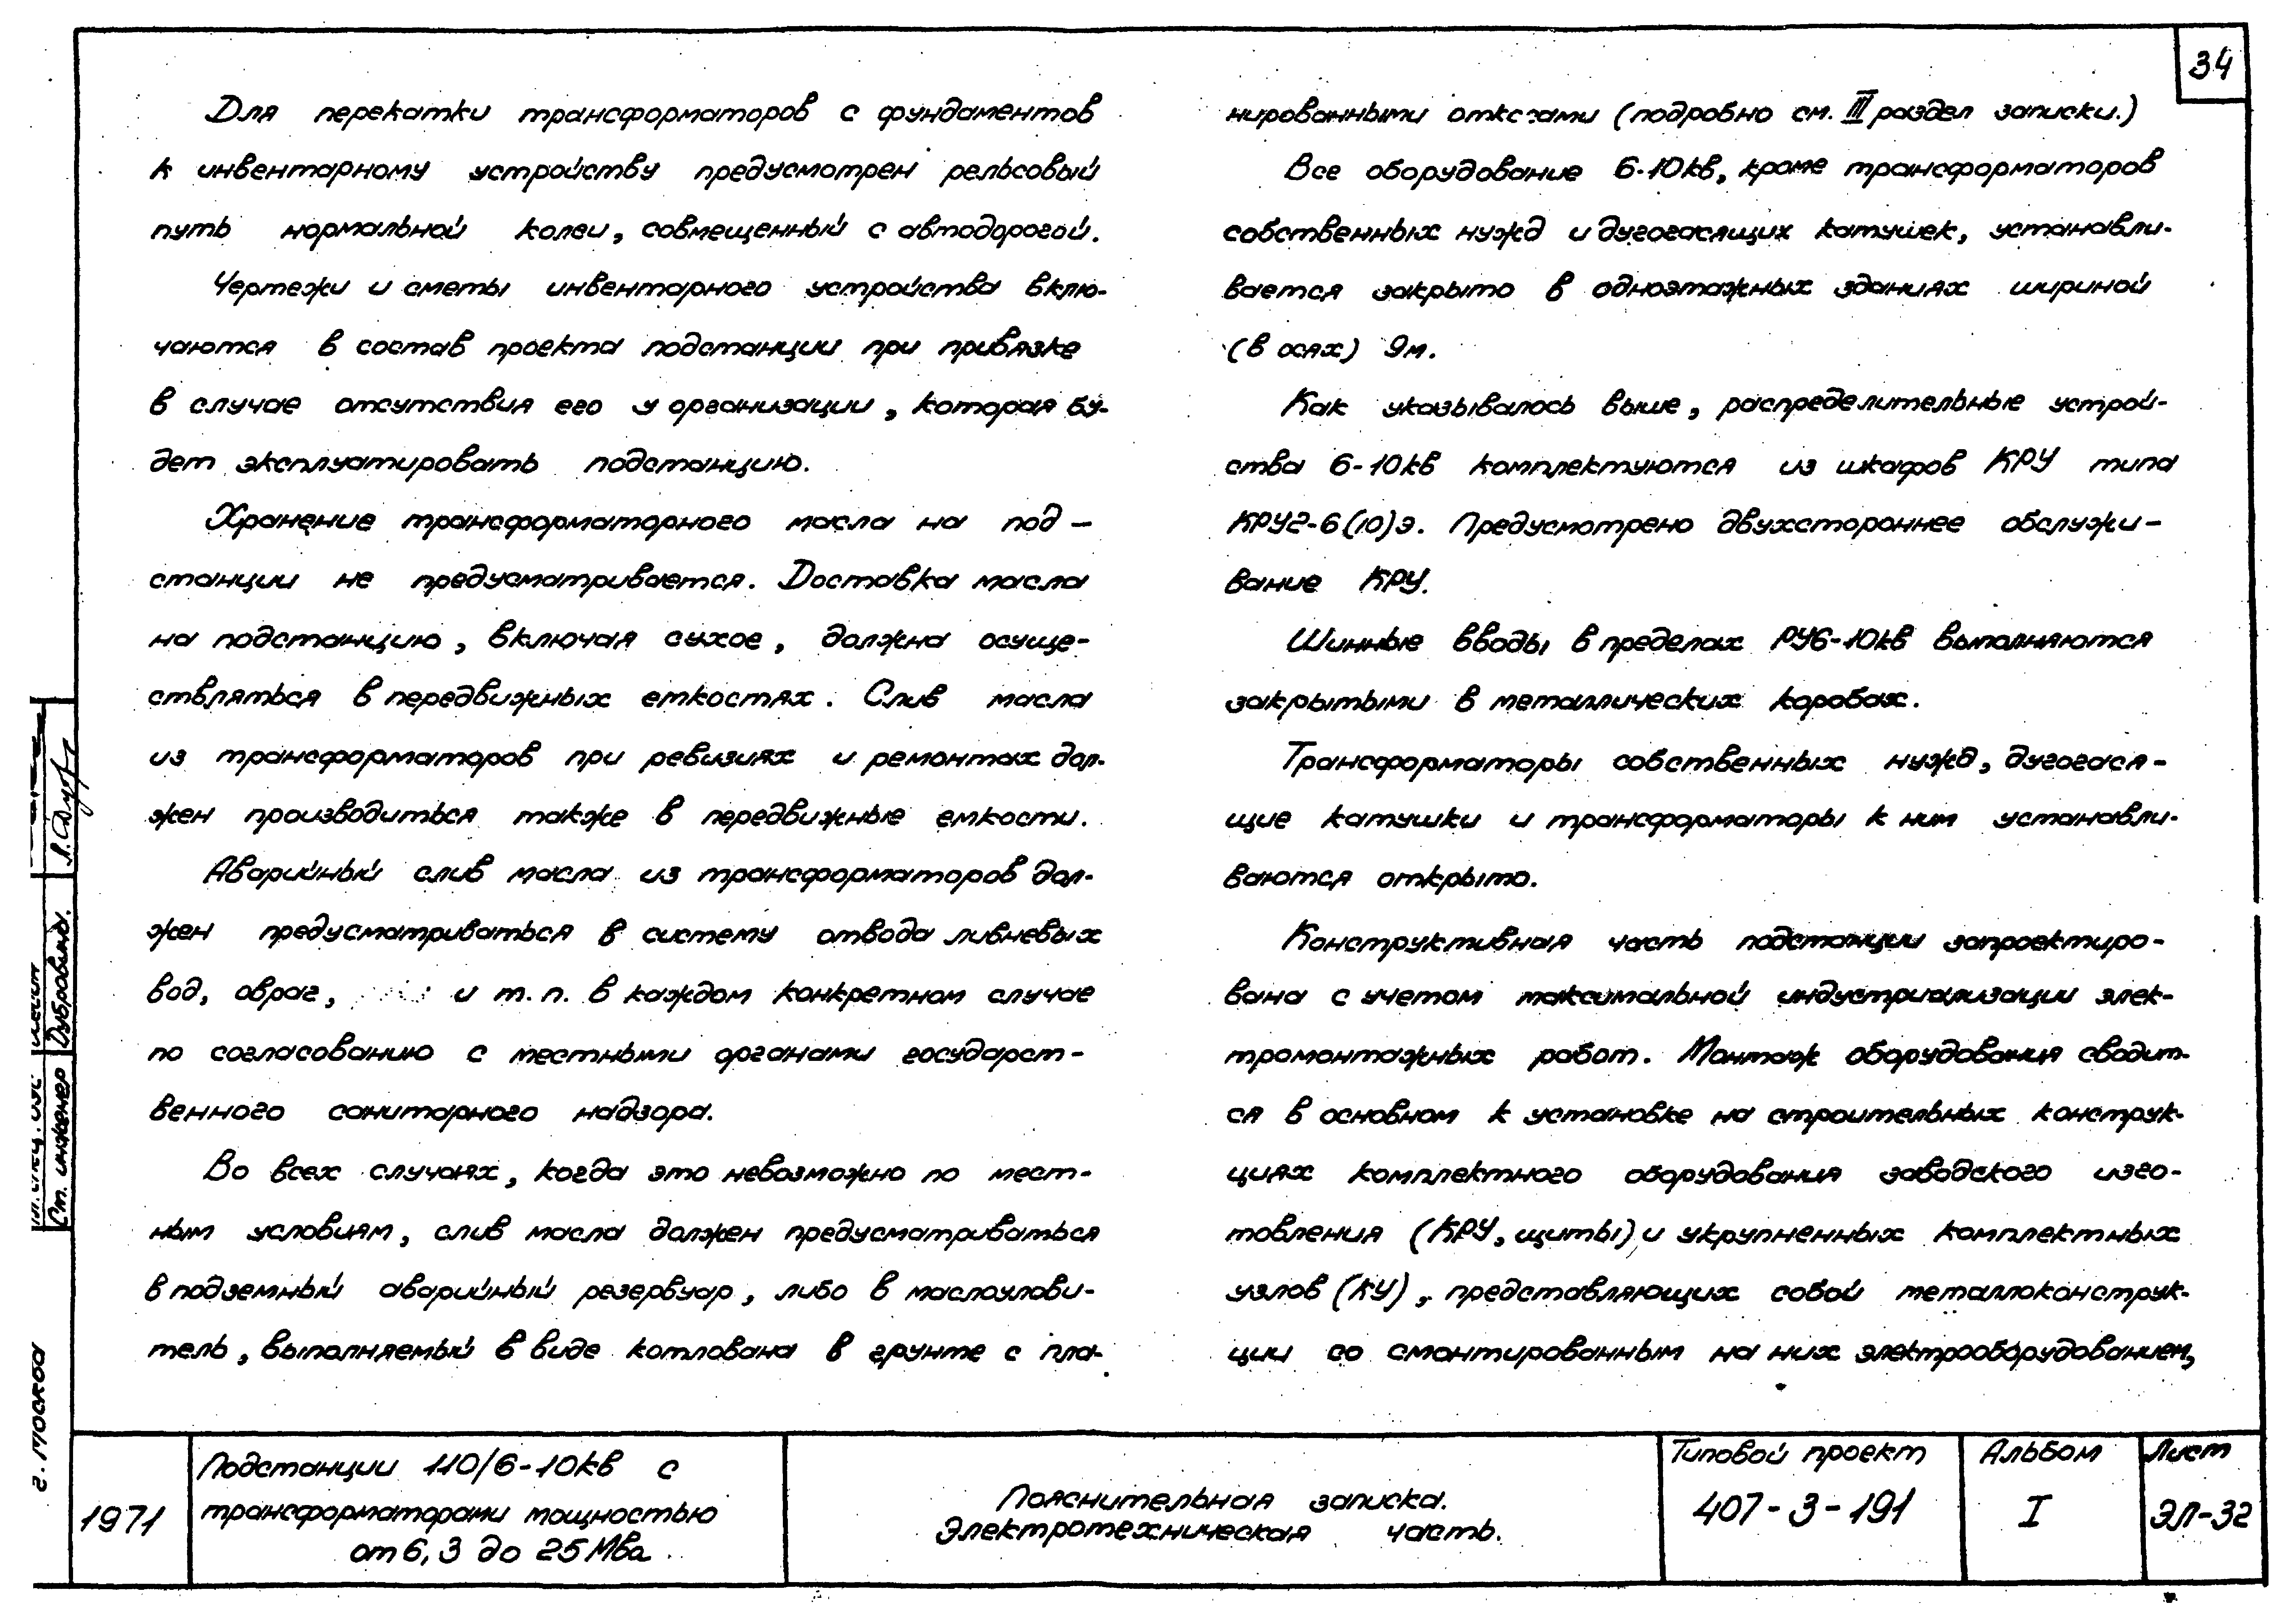 34
Для перекатки трансформаторов с фундаментов
к инвентарному устройству предусмотрен рельсовый
путь нормальной колеи, совмещенный с автодорогой.
Чертежи и сметы инвентарного устройства вклю-
чаются в состав проекта подстанции при привязке
в случае отсутствия его у организации, которая бу-
дет эксплуатировать подстанцию.
Хранение трансформаторного масла на под-
станции не предусматривается. Доставка масла
на подстанцию, включая сухое, должна осуще-
ствляться в передвижных емкостях. Слив масла
из трансформаторов при ревизиях и ремонтах дол-
жен производиться также в передвижные емкости.
Аварийный слив масла из трансформаторов дол-
жен предусматриваться в систему отвода ливневых
вод, овраг, и т.п. в каждом конкретном случае
по согласованию с местными органами государст-
венного санитарного надзора.
Во всех случаях, когда это невозможно по мест-
ным условиям, слив масла должен предусматриваться
в подземный аварийный резервуар, либо в маслоулови-
тель, выполняемый в виде котлована в грунте с пла-
нированными откосами (подробно см. III раздел записки.)
Все оборудование 6-10кв, кроме трансформаторов
собственных нужд и дугогасящих катушек, устанавли-
вается закрыто в одноэтажных зданиях шириной
(в осях) 9м.
Как указывалось выше, распределительные устрой-
ства 6-10кв комплектуются из шкафов КРУ типа
КРУ2-6(10)Э. Предусмотрено двухстороннее обслужи-
вание КРУ.
Шинные вводы в пределах РУ6-10кв выполняются
закрытыми в металлических коробах.
Трансформаторы собственных нужд, дугогася-
щие катушки и трансформаторы к ним устанавли-
ваются открыто.
Конструктивная часть подстанции запроектиро-
вана с учетом максимальной индустриализации элек-
тромонтажных работ. Монтаж оборудования сводит-
ся в основном к установке на строительных конструк-
циях комплектного оборудования заводского изго-
товления (КРУ, щиты) и укрупненных комплектных
узлов (КУ), представляющих собой металлоконструк-
ции со смонтированным на них электрооборудованием,
Ст. инженер Дубровина.
г. Москва
1971
Подстанции 110/6-10кв с
трансформаторами мощностью
от 6,3 до 25 Мва
Пояснительная записка.
Электротехническая часть.
Типовой проект
407-3-191
Альбом
I
Лист
ЭЛ-32